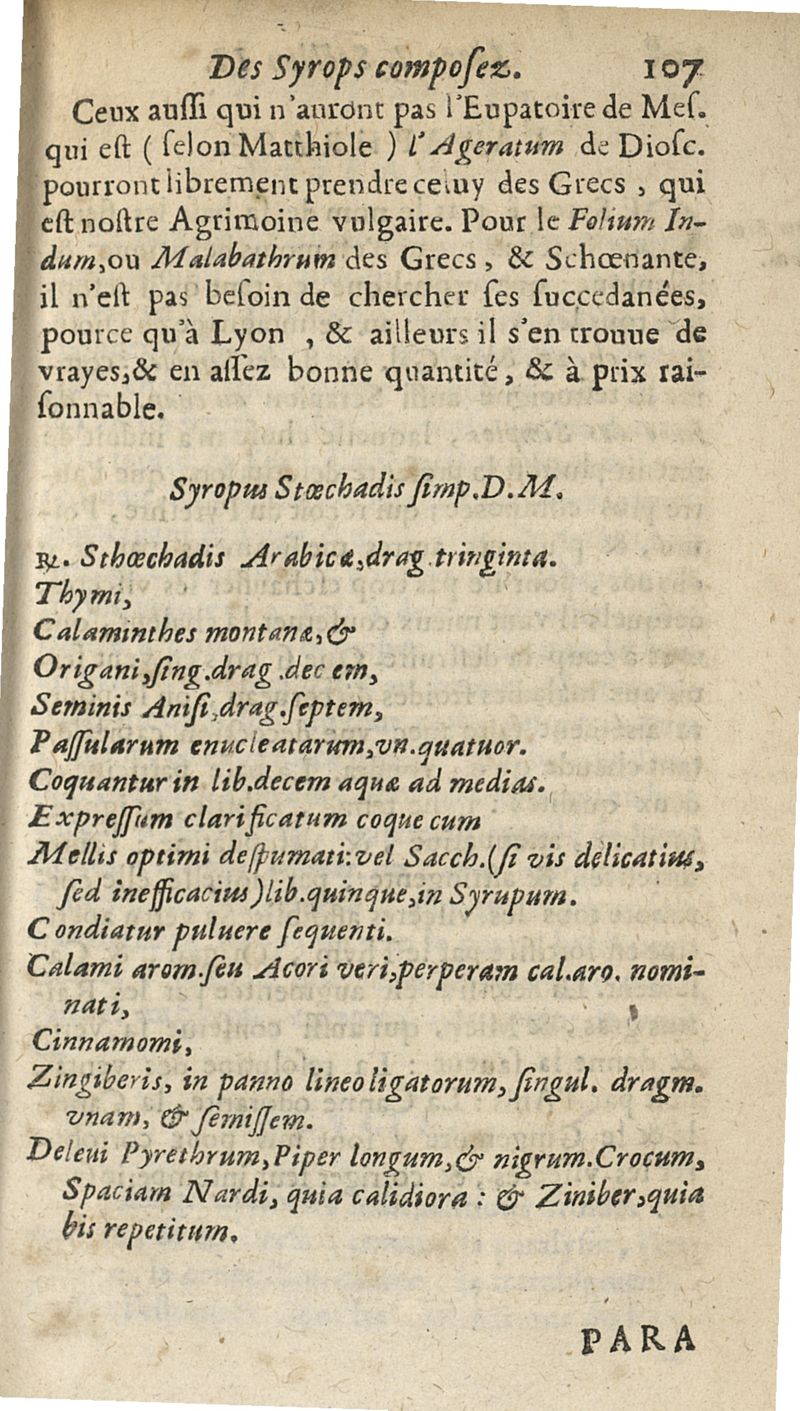 Des Syrops compoſez. 107
Ceux auſſi qui n'auront pas l'Eupatoire de Meſ.
qui eſt ( ſelon Matthiole ) l'Ageratum de Dioſc.
pourront librement prendre celuy des Grecs , qui
eſt noſtre Agrimoine vulgaire. Pour le Folium In-
dum,ou Malabathrum des Grecs , & Schœnante,
il n'eſt pas beſoin de chercher ſes ſuccedanées,
pource qu'à Lyon , & ailleurs il s'en trouue de
vrayes,& en aſſez bonne quantité , & à prix rai-
ſonnable.
Syropus Stœchadis ſimp.D.M.
℞. Sthœchadis Arabicæ,drag.tringinta.
Thymi,
Calaminthes montanæ,&
Origani,ſing.drag.decem,
Seminis Aniſi,drag.ſeptem,
Paſſularum enucleatarum,vn.quatuor.
Coquantur in lib.decem aquæ ad medias.
Expreſſum clarificatum coque cum
Mellis optimi deſpumati:vel Sacch.(ſi vis delicatius,
ſed inefficacius)lib.quinque,in Syrupum.
Condiatur puluere ſequenti.
Calami arom.ſeu Acori veri,perperam cal.aro. nomi-
nati,
Cinnamomi,
Zingiberis, in panno lineo ligatorum, ſingul. dragm.
vnam, & ſemiſſem.
Deleui Pyrethrum,Piper longum,& nigrum.Crocum,
Spaciam Nardi, quia calidiora : & Ziniber,quia
bis repetitum.
PARA